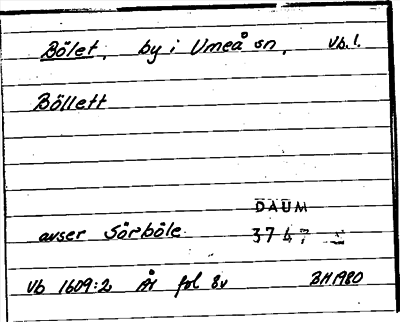 Bölet, by i Umeå sn, Vb. l.
Böllett
DAUM
avser Sörböle 3747
Vb 1609:2 Ål fol 8v BH 1980